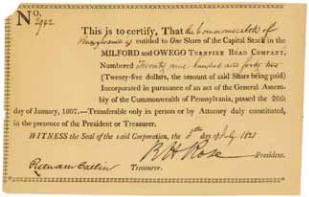 No. 2942
This is to certify, That the Commonwealth of
Pennsylvania is entitled to One Share of the Capital Stock in the
MILFORD and OWEGO TURNPIKE ROAD COMPANY,
Numbered Twenty nine hundred and forty two
(Twenty-five dollars, the amount of said Share being paid)
Incorporated in pursuance of an act of the General Assem-
bly of the Commonwealth of Pennsylvania, passed the 26th
day of January, 1807.—Transferable only in person or by Attorney duly constituted,
in the presence of the President or Treasurer.
WITNESS the Seal of the said Corporation, the 5th day of July 1821
R H Rose President.
Putnam Catlin Treasurer.